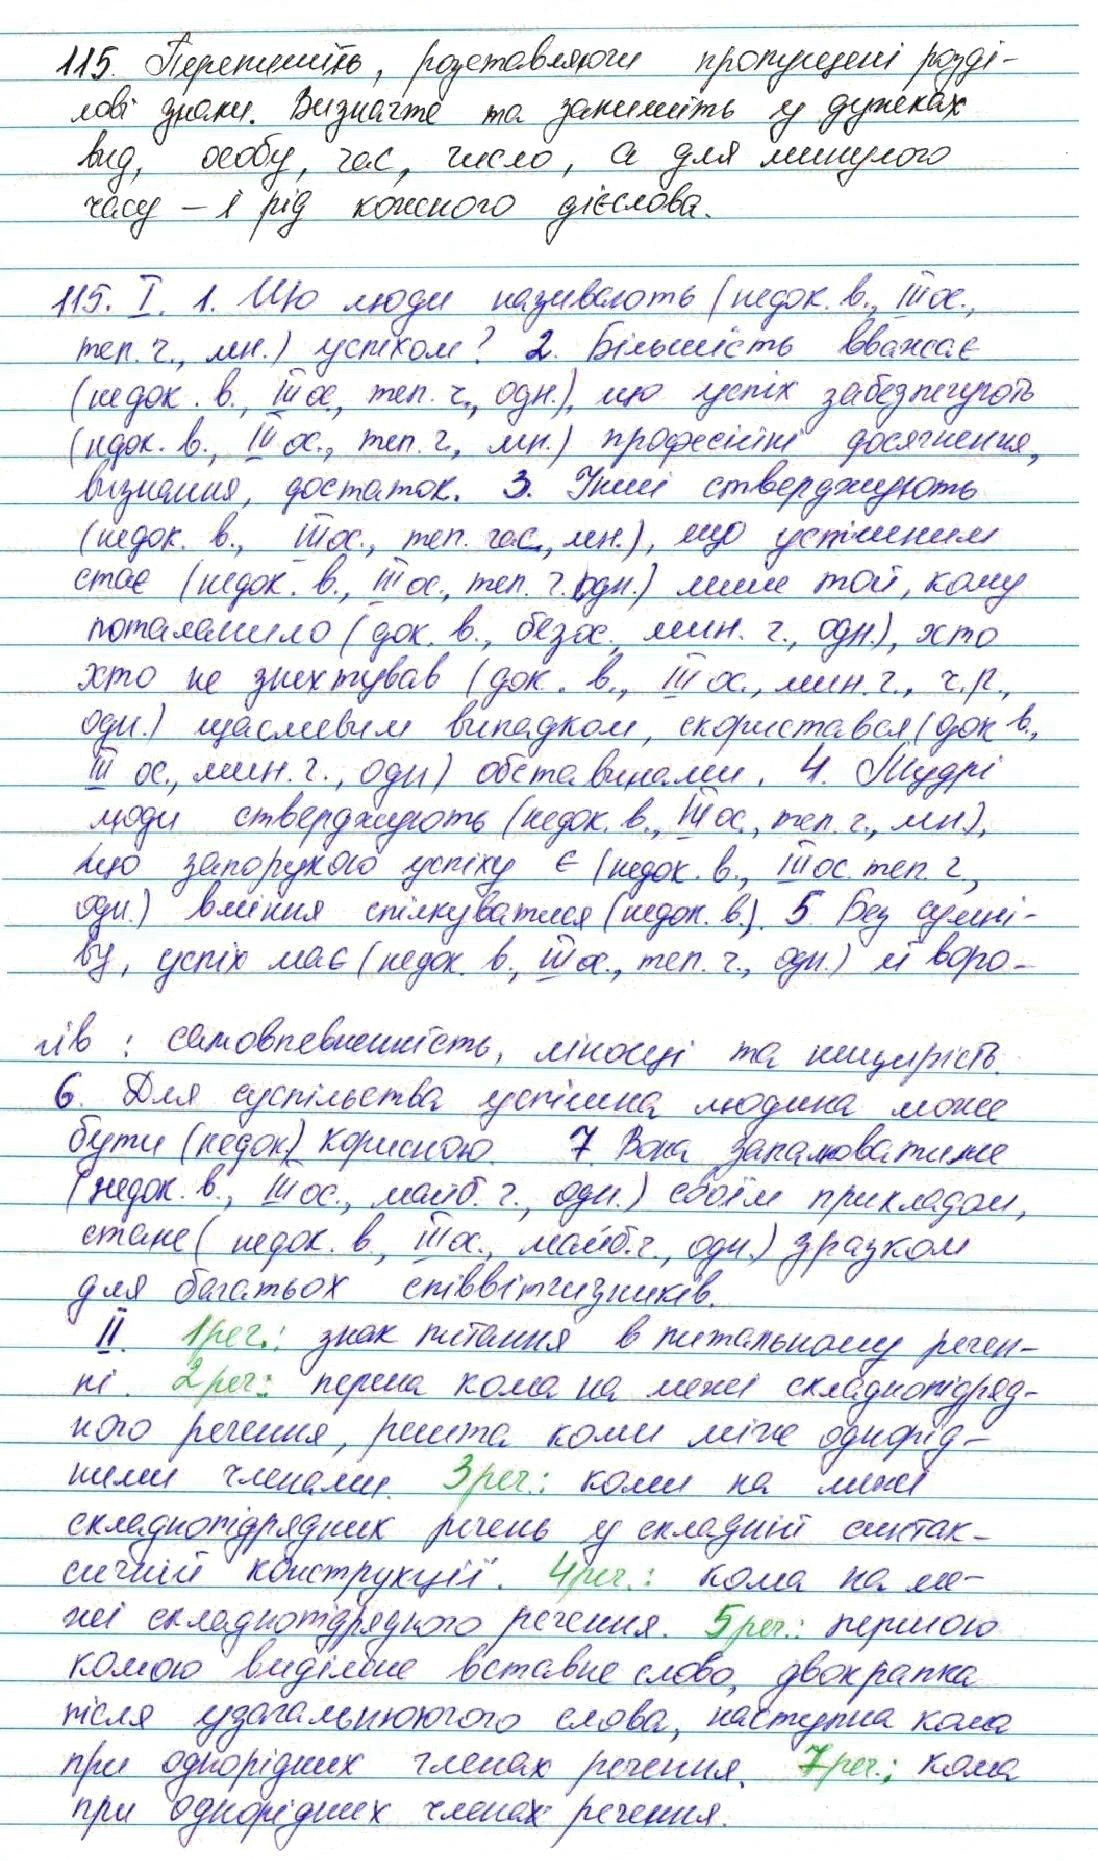 115. Перепишіть, розставляючи пропущені розді-
лові знаки. Визначте та запишіть у дужках
вид, особу, час, число, а для минулого
часу – і рід кожного дієслова.
115. І. 1. Що люди називають (недок. в., ІІІ ос.,
теп. ч., мн.) успіхом? 2. Більшість вважає
(недок. в., ІІІ ос., теп. ч., одн.), що успіх забезпечують
(ндок. в., ІІІ ос., теп. ч., мн.) професійні досягнення,
визнання, достаток. 3. Інші стверджують
(недок. в., ІІІ ос., теп. час., мн.), що успішним
стає (недок. в., ІІІ ос., теп. ч. одн.) лише той, кому
поталанило (док. в., безос., мин. ч., одн.), хто
хто не знехтував (док. в., ІІІ ос., мин. ч., ч.р.,
одн.) щасливим випадком, скористався (док в.,
ІІІ ос., мин. ч., одн) обставинами. 4. Мудрі
люди стверджують (недок. в., ІІІ ос., теп. ч., мн.),
що запорукою успіху є (недок. в., ІІІ ос. теп. ч.,
одн.) вміння спілкуватися (недок. в.). 5 Без сумні-
ву, успіх має (недок. в., ІІІ ос., теп. ч., одн.) й воро-
гів : самовпевненність, лінощі та нещирість.
6. Для суспільства успішна людина може
бути (недок.) корисною. 7 Вона запалюватиме
(недок. в., ІІІ ос., майб. ч., одн.) своїм прикладом,
стане ( недок. в., ІІІ ос., майб. ч., одн.) зразком
для багатьох співвітчизників.
ІІ. 1 реч.: знак питання в питальному речен-
ні. 2 реч: перша кома на межі складнопідряд-
ного речення, решта коми між однорід-
ними членами. 3 реч.: коми на межі
складнопідрядних речень у складній синтак-
сичній конструкції. 4 реч.: кома на ме-
жі складнопідрядного речення. 5 реч.: першою
комою виділене вставне слово, двокрапка
після узагальнюючого слова, наступна кома
при однорідних членах речення. 7 реч.: кома
при однорідних членах речення.